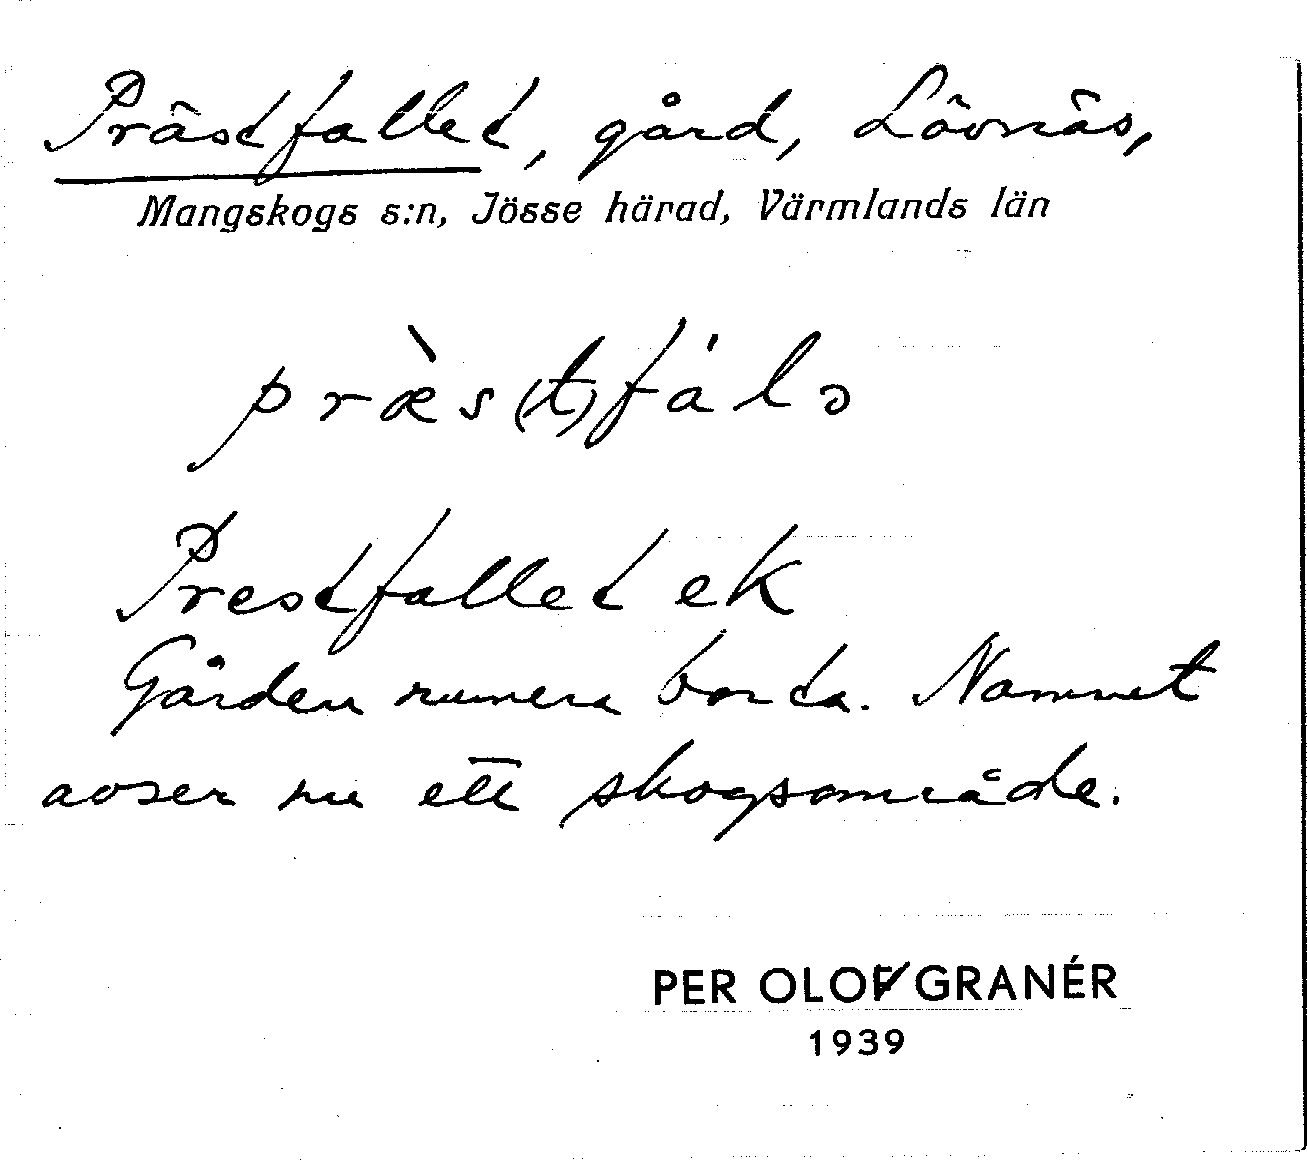 Prästfallet, gård, Lövnäs,
Mangskogs s:n, Jösse härad, Värmlands län
præ̀s(t)fál ɔ
Prestfallet ek
Gården numera borta. Namnet
avser nu ett skogsområde.
PER OLOF GRANÉR
1939